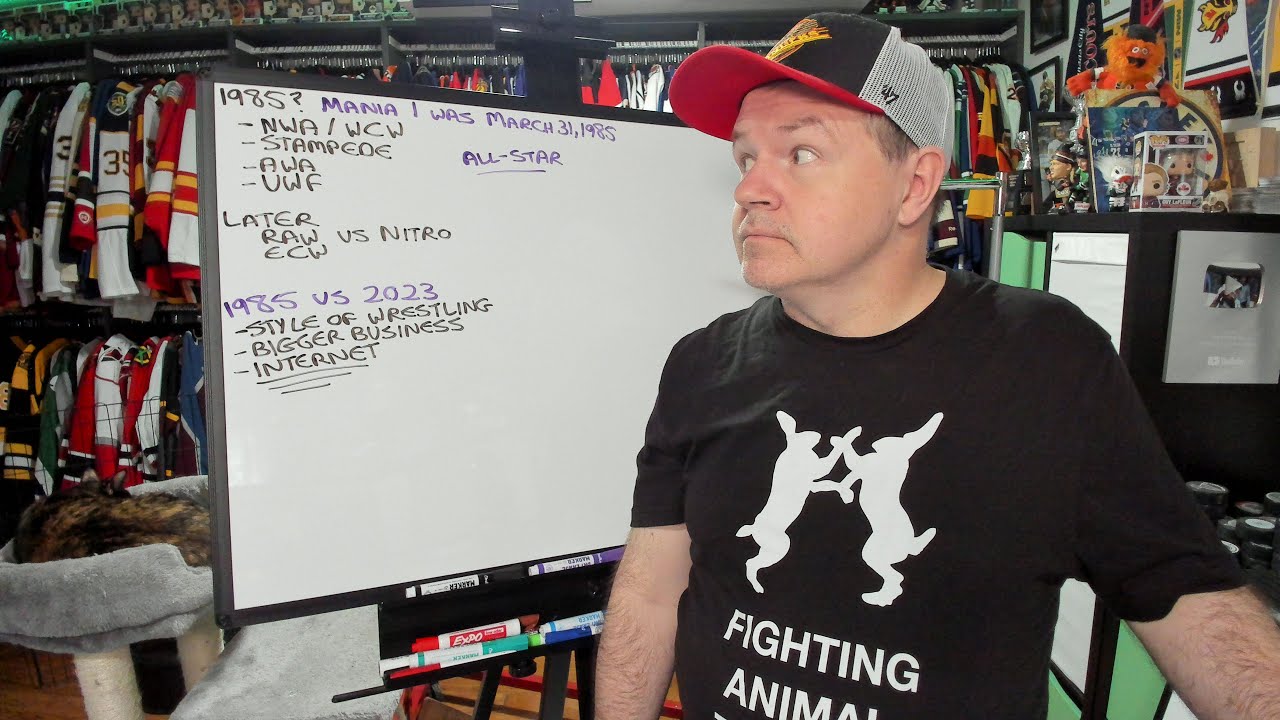 1985? MANIA 1 WAS MARCH 31, 1985
- NWA / WCW
- STAMPEDE
- AWA
- UWF
ALL-STAR
LATER
RAW VS NITRO
ECW
1985 VS 2023
- STYLE OF WRESTLING
- BIGGER BUSINESS
- INTERNET
FIGHTING
ANIMAL
EXPO
MARKER
MARKER
MARKER
'47
35
GUY LAFLEUR
YouTube